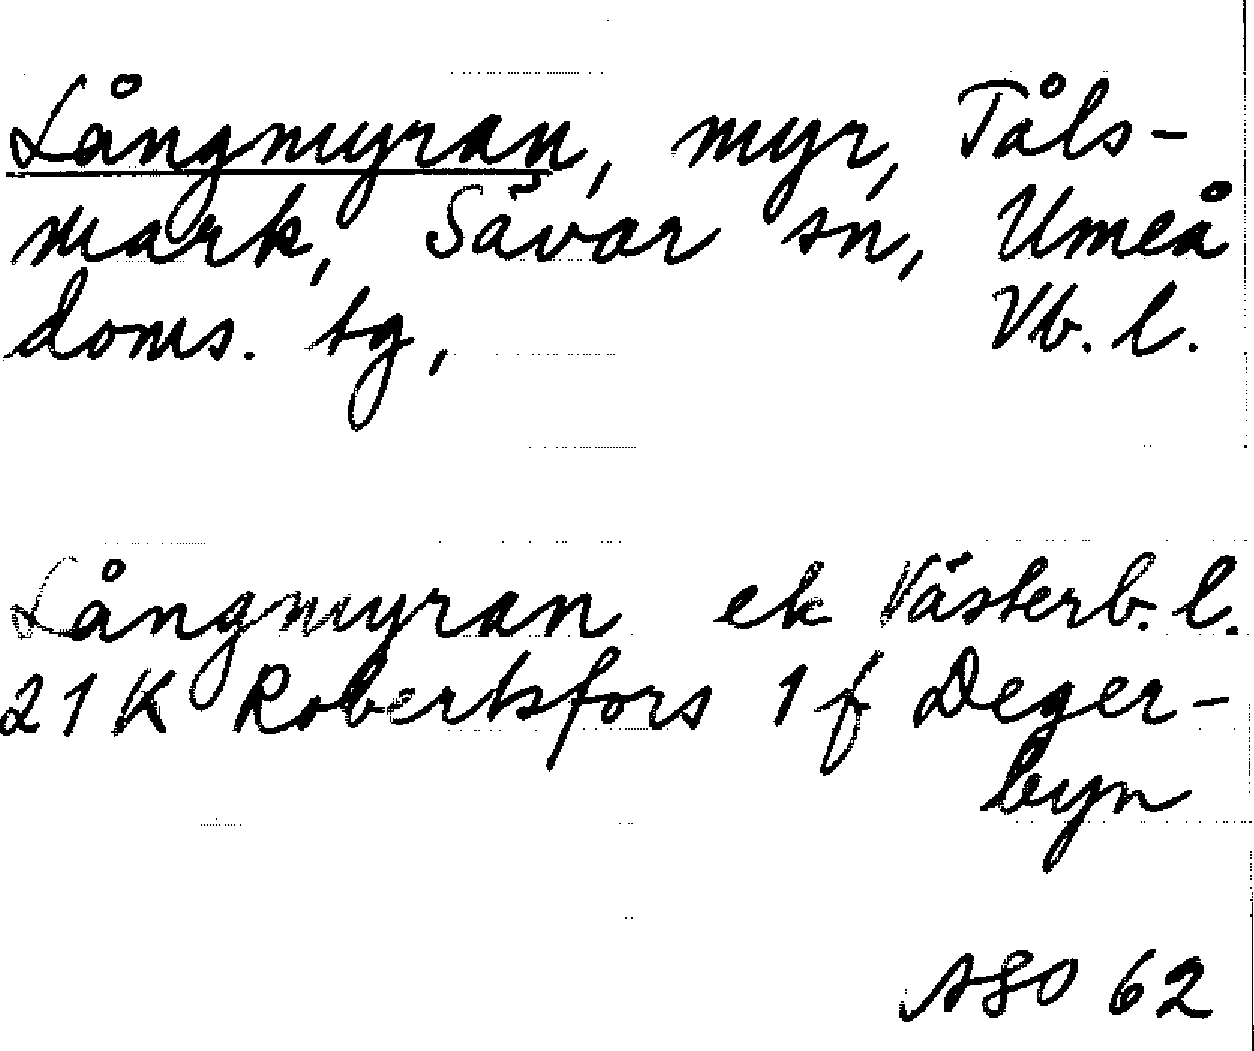 Långmyran, myr, Tåls-
mark, Sävar sn, Umeå
doms. tg, Vb. l.
Långmyran ek Västerb. l.
21 K Robertsfors 1 f Deger-
byn
ASO 62